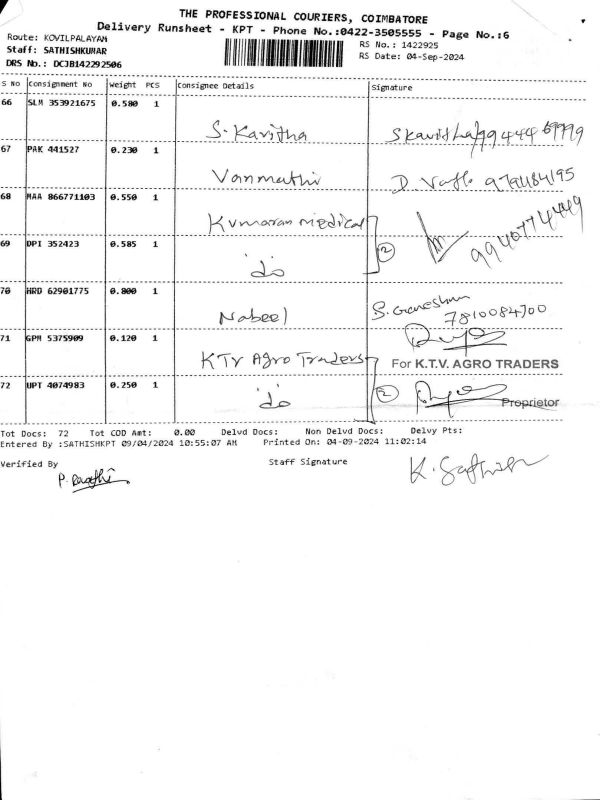 THE PROFESSIONAL COURIERS, COIMBATORE
Delivery Runsheet - KPT - Phone No.:0422-3505555 - Page No.:6
Route: KOVILPALAYAM
RS No.: 1422925
Staff: SATHISHKUMAR
RS Date: 04-Sep-2024
DRS No.: DCJB142292506
S No Consignment No Weight PCS Consignee Details Signature
66 SLM 353921675 0.580 1
S. Kavitha S Kavitha/99444 69979
67 PAK 441527 0.230 1
Vanmathi D. 9791184195
68 MAA 866771103 0.550 1
Kumaran medical 9940774449
69 DPI 352423 0.585 1 2
do
70 HRD 62901775 0.800 1
Nabeel S. Ganeshan
7810084700
71 GPM 5375909 0.120 1
KTV Agro Traders For K.T.V. AGRO TRADERS
72 UPT 4074983 0.250 1 2
do Proprietor
Tot Docs: 72 Tot COD Amt: 0.00 Delvd Docs: Non Delvd Docs: Delvy Pts:
Entered By :SATHISHKPT 09/04/2024 10:55:07 AM Printed On: 04-09-2024 11:02:14
Verified By Staff Signature
K. Sathish